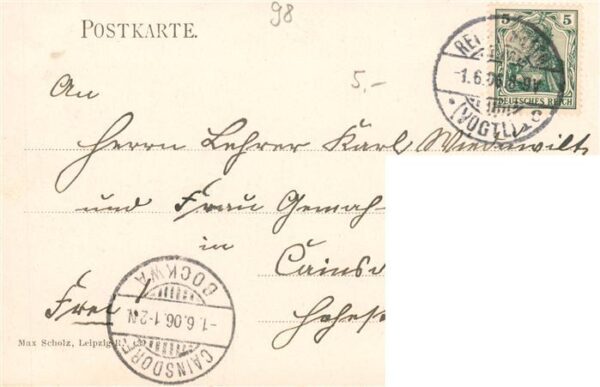 98
POSTKARTE.
5,-
5 5
DEUTSCHES REICH
1.6.06. 8-9V
(VOGTL)
An
Herrn Lehrer Karl
und Frau Gemah-
in
Cainsd
Frei!
BOCKWA
1.6.06.1-2N
CAINSDORF
Max Scholz, Leipzig-R.